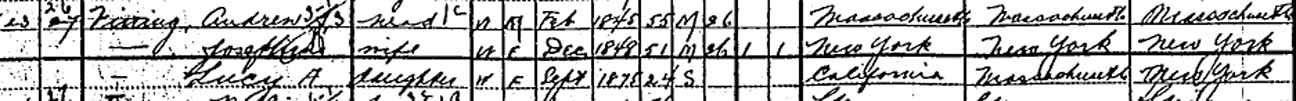 Andrew head W M Feb 1845 55 M 26 Massachusetts Massachusetts Massachusetts
— Josephine wife W F Dec 1848 51 M 26 1 1 New York New York New York
— Lucy A daughter W F Sept 1875 24 S California Massachusetts New York